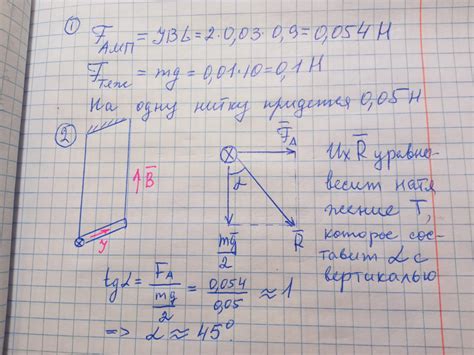 ① F_АМП = YBL = 2·0,03·0,9 = 0,054 Н
F_тяж = mg = 0,01·10 = 0,1 Н
На одну нитку придется 0,05 Н
②
↑B̅
Y
F̅_A
α
mg̅/2
R̅
Их R̅ уравно-
весит натя
жение T,
которое сос-
тавит α с
вертикалью
tgα = F_A/(mg/2) = 0,054/0,05 ≈ 1
=> α ≈ 45°.